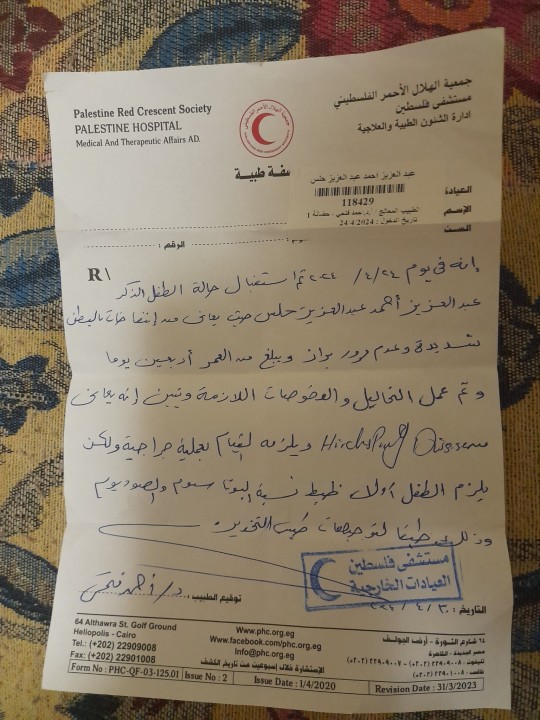 Palestine Red Crescent Society
PALESTINE HOSPITAL
Medical And Therapeutic Affairs AD.
جمعية الهلال الأحمر الفلسطيني
مستشفى فلسطين
ادارة الشئون الطبية والعلاجية
فة طبية
العيادة
الإسم
السن
عبد العزيز احمد عبد العزيز حلس
118429
الطبيب المعالج : ا.د.حمد فتحي - حضانة 1
تاريخ الدخول : 24.4.2024
الرقم :
R\
إنه في يوم ٢٤/٤/٢٠٢٤ تم استقبال حالة الطفل الذكر
عبدالعزيز أحمد عبدالعزيز حلس حيث يعانى من إنتفاخات بالبطن
شديدة وعدم مرور براز ويبلغ من العمر أربعين يوما
وتم عمل التحاليل والفحوصات اللازمة وتبين إنه يعانى
من Disease ويلزمه القيام بعملية جراحية ولكن
يلزم الطفل أولا ظبط نسبة البوتاسيوم والصوديوم
وذلك طبقا لتوجيهات طبيب التخدير
مستشفى فلسطين
العيادات الخارجية
توقيع الطبيب : د/ أحمد فتحى
التاريخ :
64 Althawra St. Golf Ground
Heliopolis - Cairo
Tel.: (+202) 22909008
Fax: (+202) 22901008
Www.phc.org.eg
Www.facebook.com/phc.org.eg
Info@phc.org.eg
الإستشارة خلال إسبوعين من تاريخ الكشف
٦٤ شارع الثورة - أرض الجولف
مصر الجديدة - القاهرة
تليفون : ٢٢٩٠٩٠٠٨ (٠٢٠٢) - ٢٢٩٠٩٠٠٧ (٠٢٠٢)
فاكس : ٢٢٩٠١٠٠٨ (٠٢٠٢)
Form No : PHC-QF-03-125.01 Issue No : 2 Issue Date : 1/4/2020 Revision Date : 31/3/2023